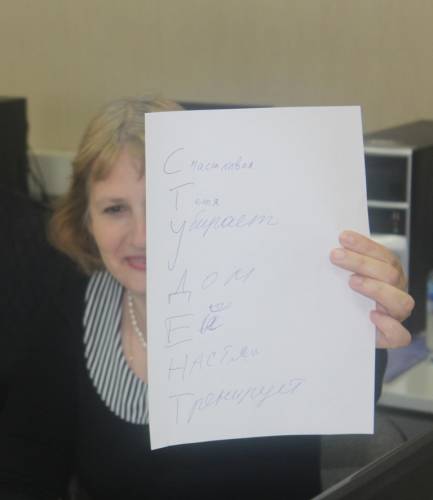 Счастливая
Тётя
Убирает
Дом
Ей
Настя
Тренирует